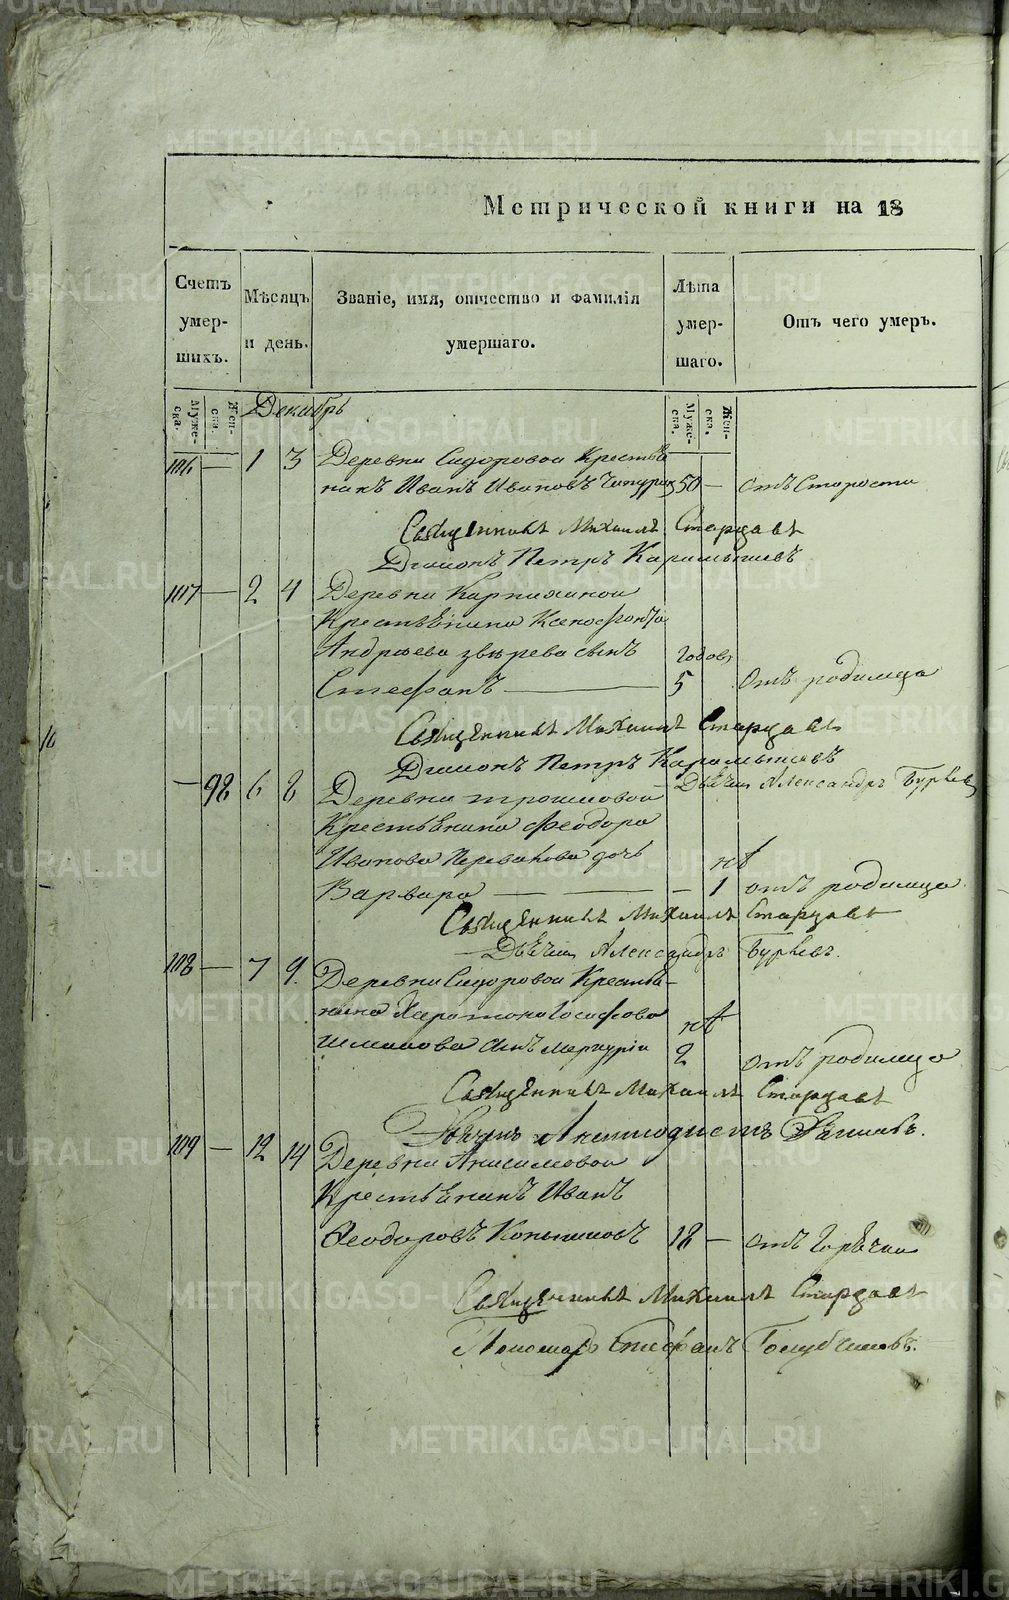 Метрической книги на 18
Счетъ умер-шихъ.
Мѣсяцъ и день.
Званіе, имя, отчество и фамилія умершаго.
Лѣта умер-шаго.
Отъ чего умеръ.
Муже-ска.
Жен-ска.
Муже-ска.
Жен-ска.
Декабрь
106 — 1 3 Деревни Сидоровой Крестья
нинъ Иванъ Ивановъ 50 — отъ Старости
Священникъ Михаилъ Старцовъ
Діаконъ Петръ Карамышевъ
107 — 2 4 Деревни Карпихиной
Крестьянина Ксенофонта
Андреева Звѣрева сынъ годовъ
Стефанъ — 5 отъ родимца
Священникъ Михаилъ Старцовъ
Діаконъ Петръ Карамышевъ
Дьячи Александръ
— 98 6 8 Деревни Трошковой
Крестьянина Феодора
Иванова дочь
Варвара — — — 1 отъ родимца
Священникъ Михаилъ Старцовъ
Дьячи Александръ
108 — 7 9 Деревни Сидоровой Крестья-
нина Харитона Іосифова
сынъ Меркурій 2 отъ родимца
Священникъ Михаилъ Старцовъ
109 — 12 14 Деревни Анисимовой
Крестьянинъ Иванъ
Феодоровъ 18 — отъ Горячки
Священникъ Михаилъ Старцовъ
Пономарь Стефанъ Голубчиковъ
METRIKI.GASO-URAL.RU